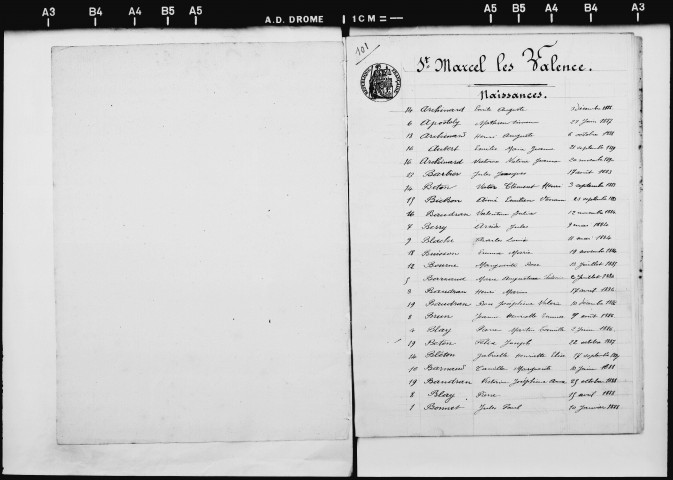 A3 B4 A4 B5 A5 A.D. DROME 1CM A5 B5 A4 B4 A3
101
St Marcel les Valence.
Naissances.
14 Archinard Emile Auguste
6 Apostoly Mathieu 23 Juin 1887
13 Archinard Henri Auguste 6 octobre
16 Aubert Emilie Marie Jeanne 21 septembre
16 Archinard Victorine Valérie Jeanne 20 novembre
13 Barbier Jules Jacques 18 août 1883
14 Beton Victor Clément Henri 3 septembre
15 Bichon Aimé Emilien 21 septembre
16 Baudran Valentine Julie 12 novembre 1884
7 Berry Jules 9 mai 1884
9 Blache Charles Louis 11 mai 1884
18 Buisson Marie 18 novembre
12 Bourne Marguerite Rose 13 juillet 1885
5 Barnaud Marie Augustine 2 juillet 1886
3 Baudran Henri Marius 17 avril 1886
19 Baudran Rose Joséphine Valérie 10 décembre 1886
8 Brun Jeanne Henriette 9 août 1886
4 Blay Pierre Martin Camille 2 Juin 1886
19 Beton Félix Joseph 22 octobre 1887
14 Bleton Gabrielle Henriette Elise 17 septembre
10 Barnaud Camille Marguerite 10 Juin 1888
19 Baudran Victorine Joséphine 25 octobre 1888
8 Blay Pierre 15 avril 1888
1 Bonnet Jules Paul 20 Janvier 1888